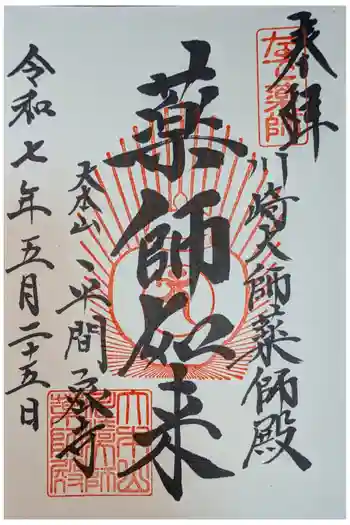 奉拝
川崎大師薬師殿
薬師如来
大本山
平間寺
令和七年五月二十五日